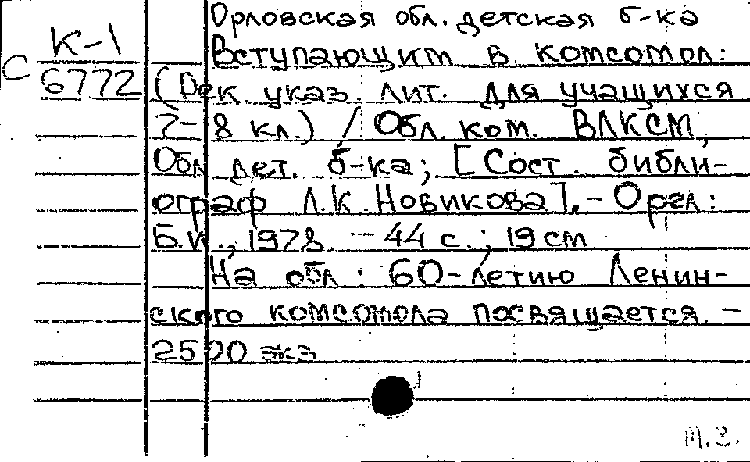 Орловская обл. детская б-ка
К-1
Вступающим в комсомол:
С 6772
(Рек. указ. лит. для учащихся
7-8 кл.) / Обл. ком. ВЛКСМ,
Обл. дет. б-ка; [Сост. библи-
ограф Л.К. Новикова]. - Орел:
Б.и., 1978. - 44 с.; 19 см
На обл.: 60-летию Ленин-
ского комсомола посвящается. -
2500 экз